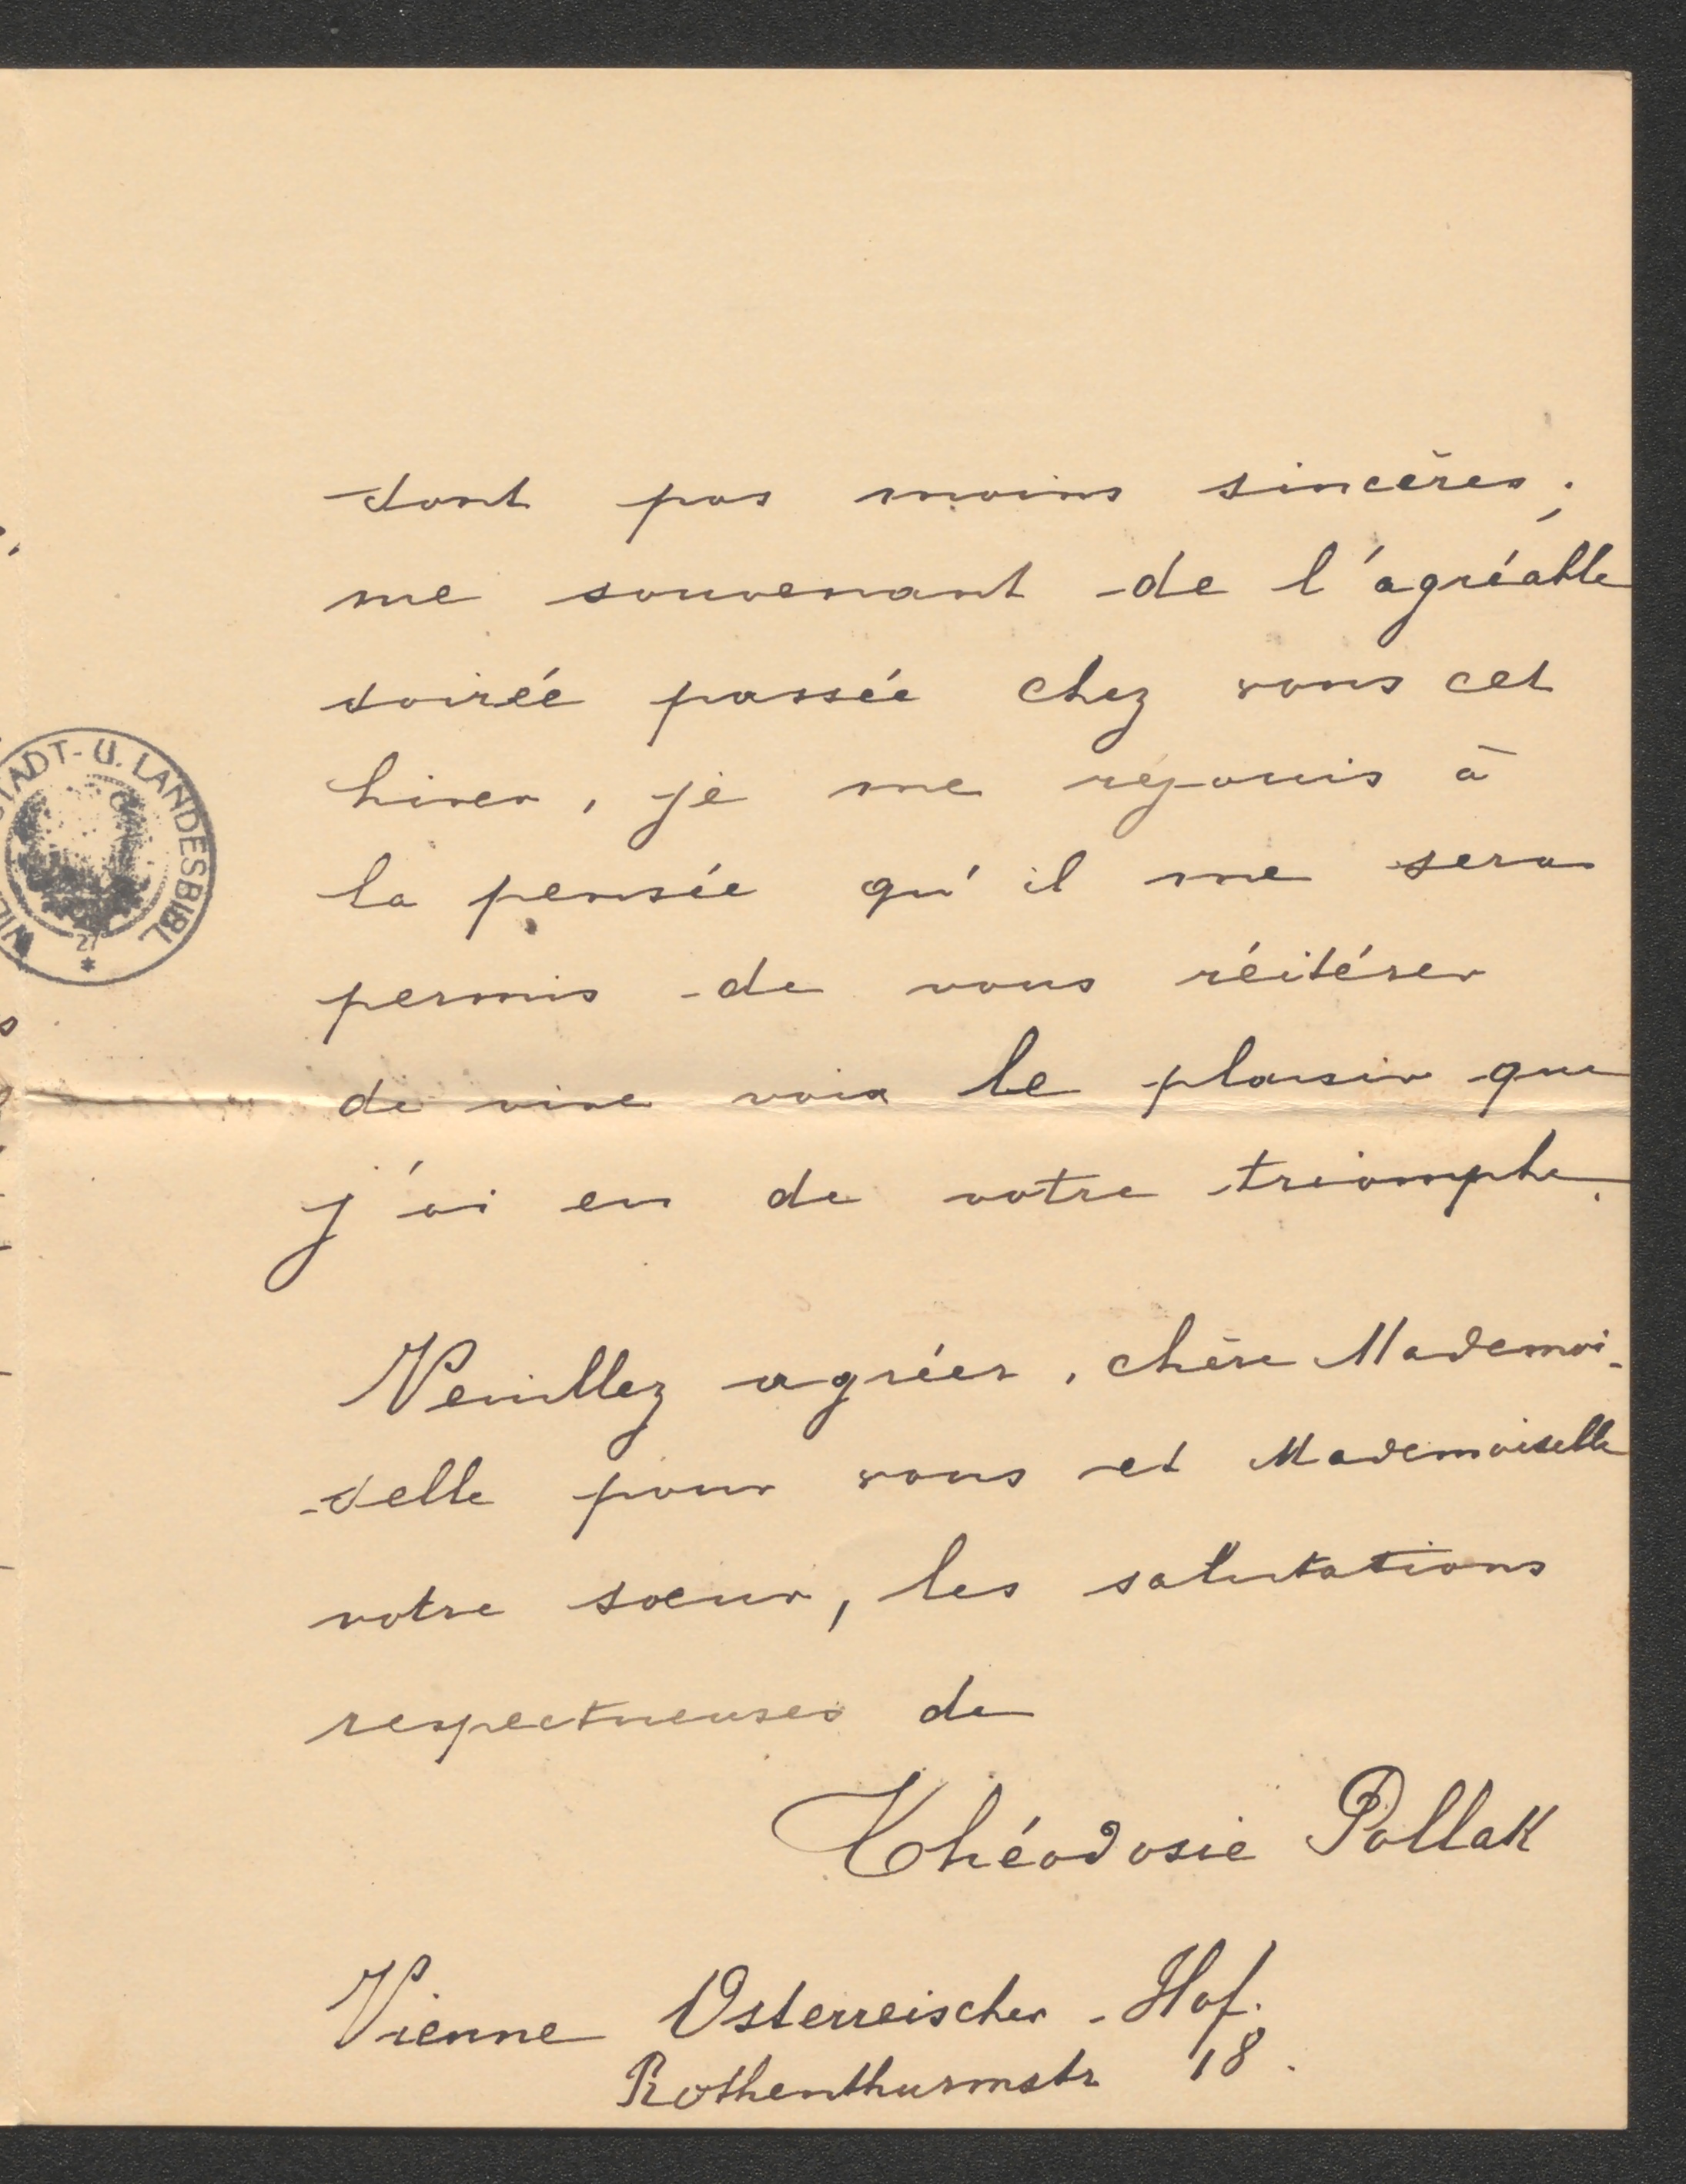 sont pas moins sincères;
me souvenant de l'agréable
soirée passée chez vous cet
hiver, je me réjouis à
la pensée qu'il me sera
permis de vous réitérer
de vive voix le plaisir que
j'ai eu de votre triomphe.
Veuillez agréer, chère Mademoi-
-selle pour vous et Mademoiselle
votre sœur, les salutations
respectueuses de
Théodosie Pollak
Vienne Osterreischer-Hof.
Rothenthurmstr 18.
STADT- U. LANDESBIBL